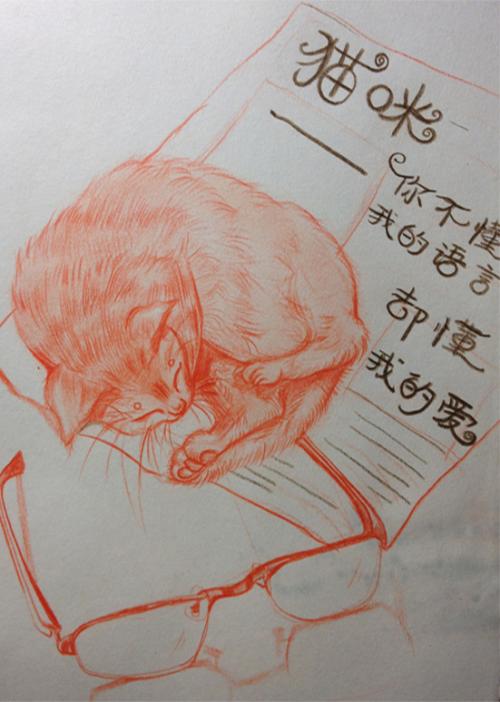 猫咪
你不懂
我的语言
却懂
我的爱